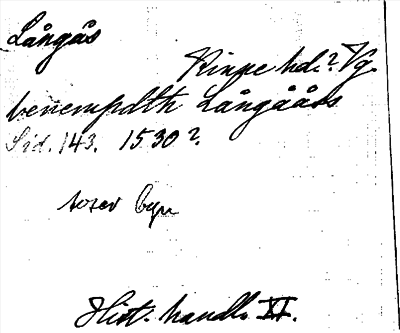 Långås
Kinne hd.? Vg.
benempdth Långååss
Sid. 143. 1530?
Hist. handl. XI.